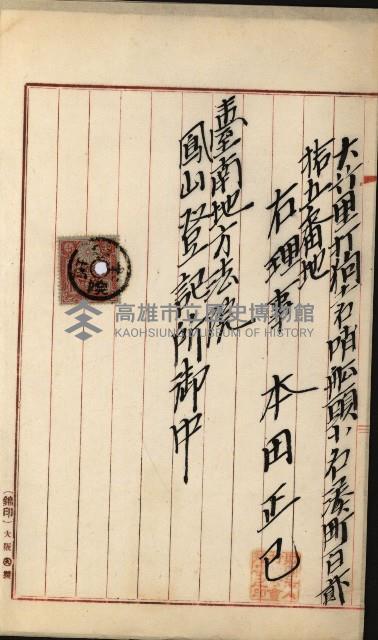 大竹里打狗字哨船頭小字湊町百貳
拾五番地
右理事 本田正已
臺南地方法院
鳳山登記所御中
高雄市立歷史博物館
KAOHSIUNG MUSEUM OF HISTORY
(錦印) 大阪